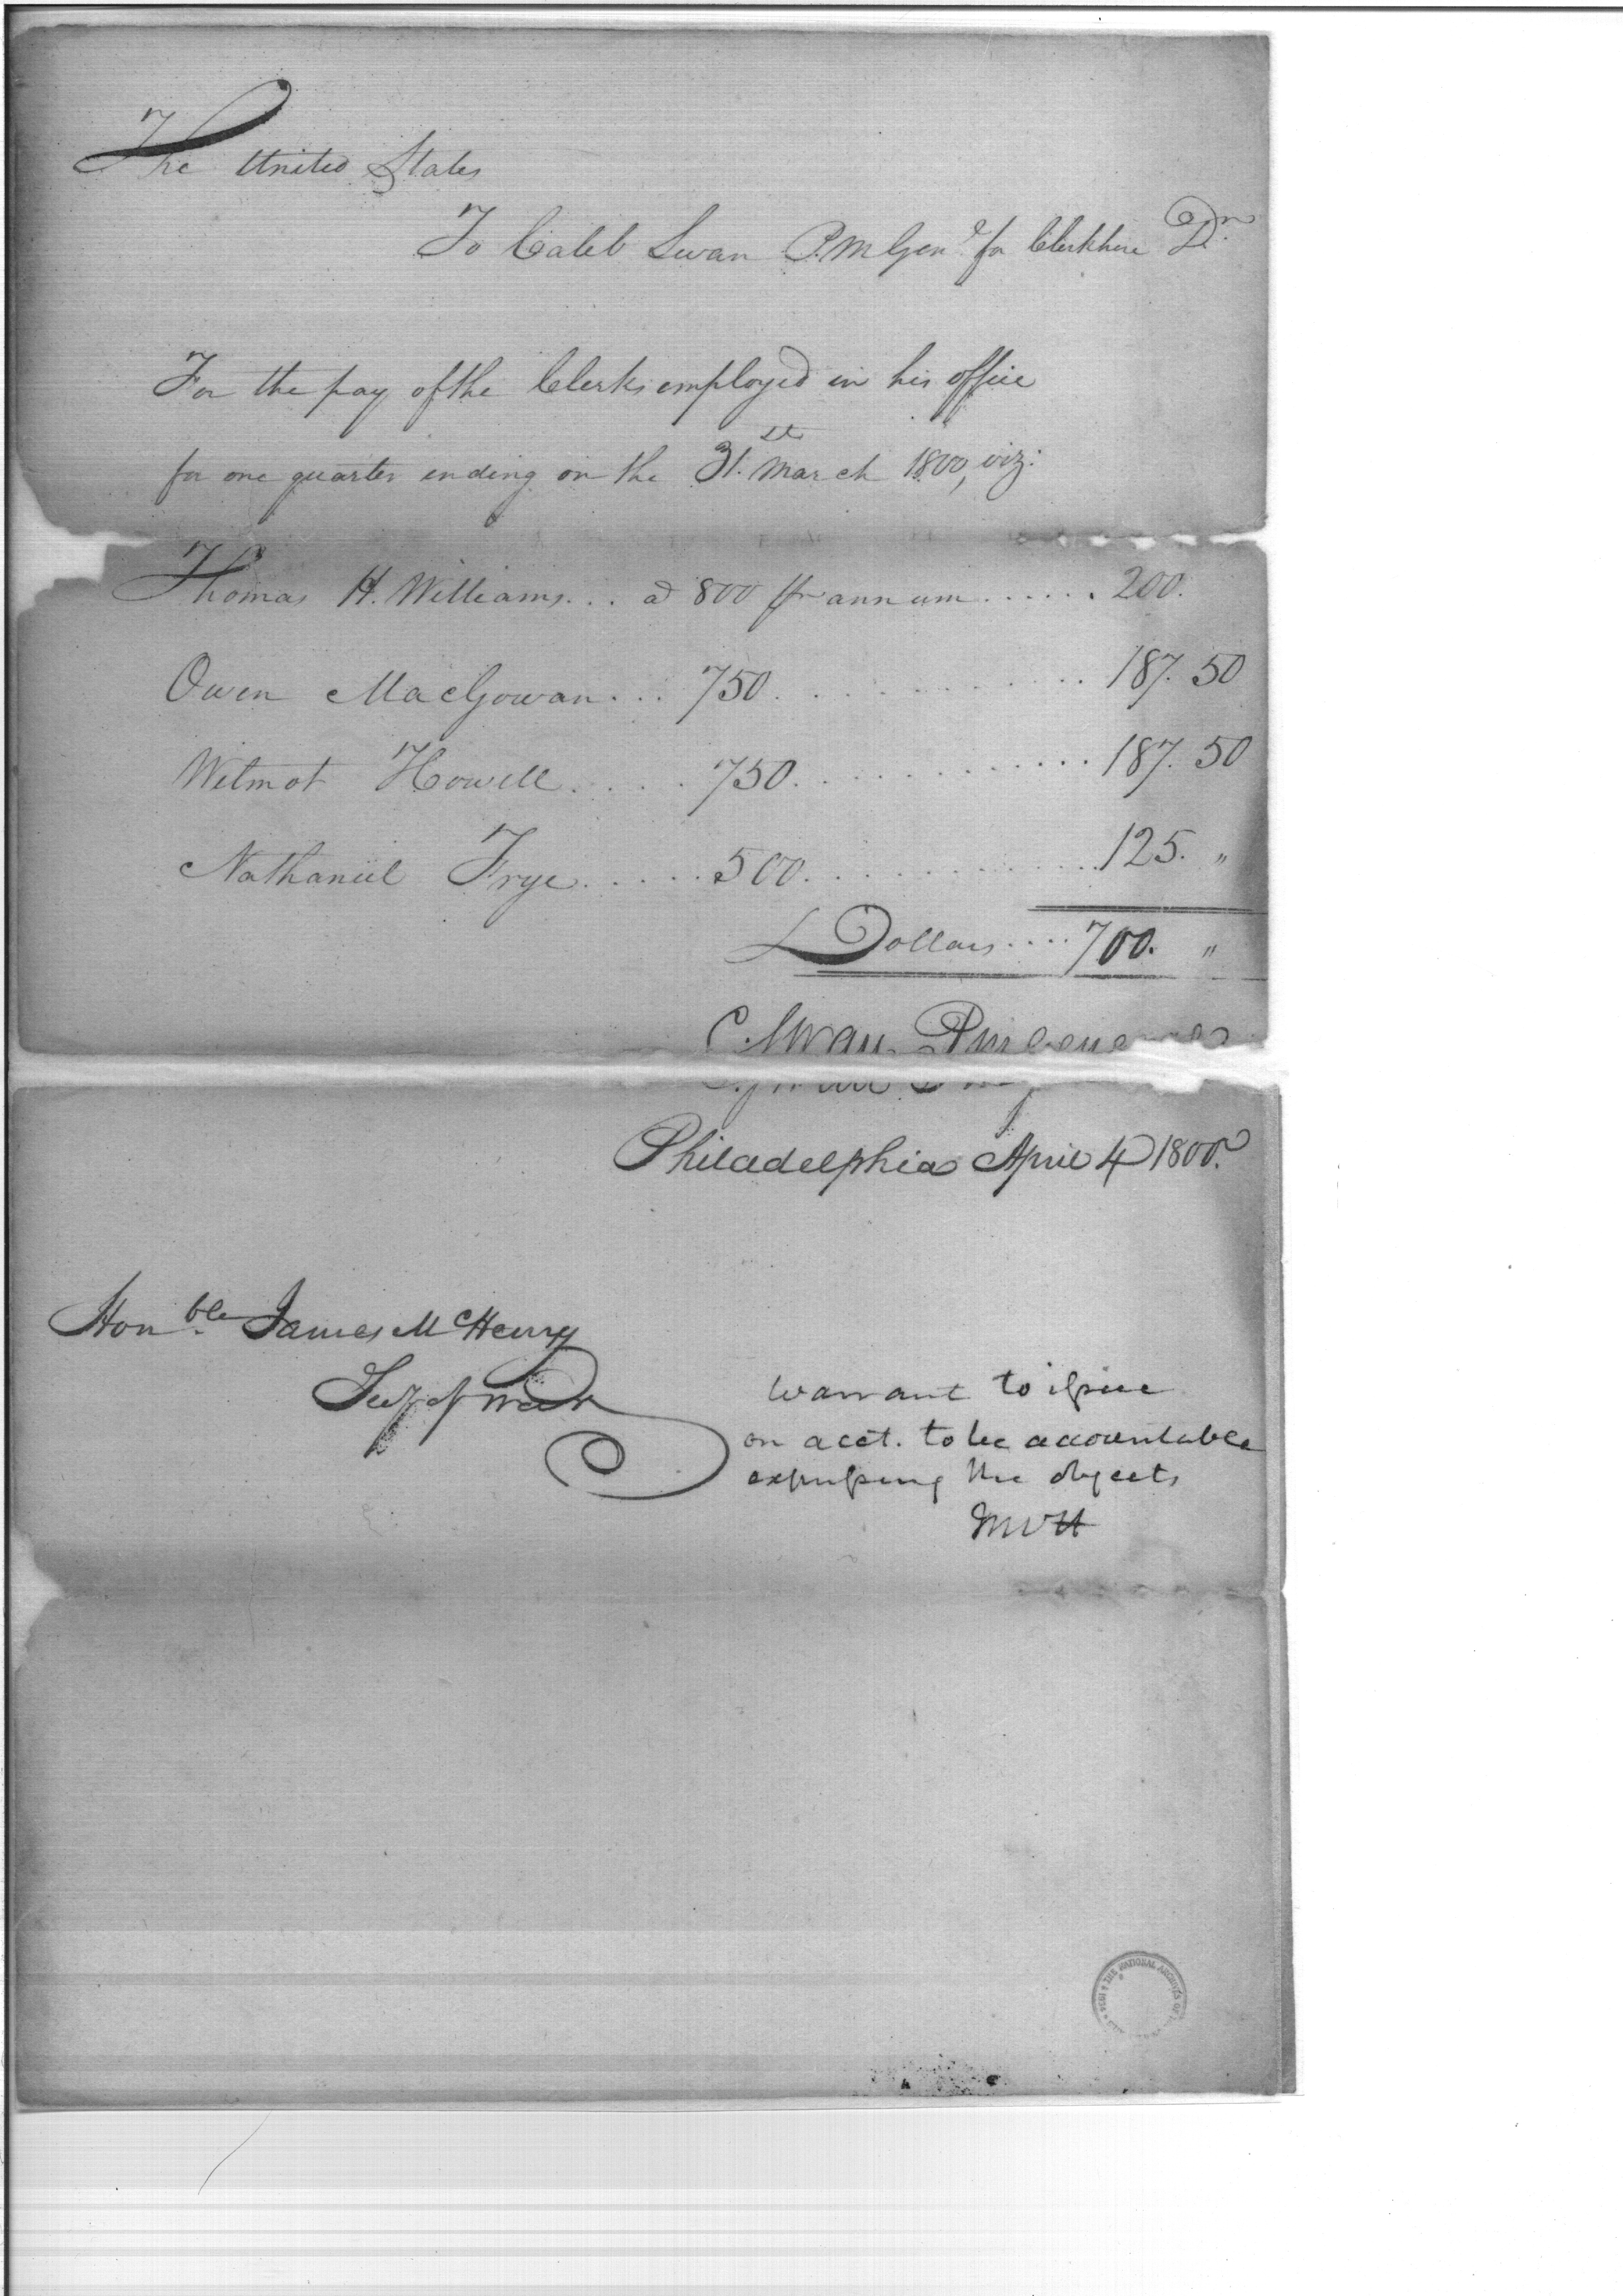 The United States
To Caleb Swan P.M Genl. for Clerkhire Dr.
For the pay of the Clerks employed in his office
for one quarter ending on the 31.st March 1800, viz:
Thomas H. Williams... a 800 pr annum...... 200.
Owen MacGowan... 750............ 187.50
Wilmot Howell..... 750............ 187.50
Nathaniel Frye..... 500............ 125. "
Dollars.... 700. "
C. Swan PmGeneral
Philadelphia April 4 1800.
Honble. James McHenry
Secy of War
warrant to issue
on acct. to be accountable
expressing the objects
McH
THE NATIONAL ARCHIVES OF